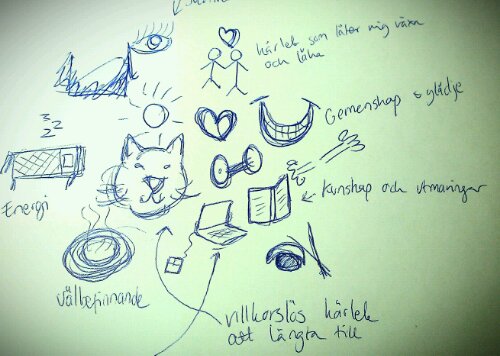 kärlek som låter mig växa
och läka
Gemenskap & glädje
zzz
Energi
kunskap och utmaningar
välbefinnande
villkorslös kärlek
att längta till